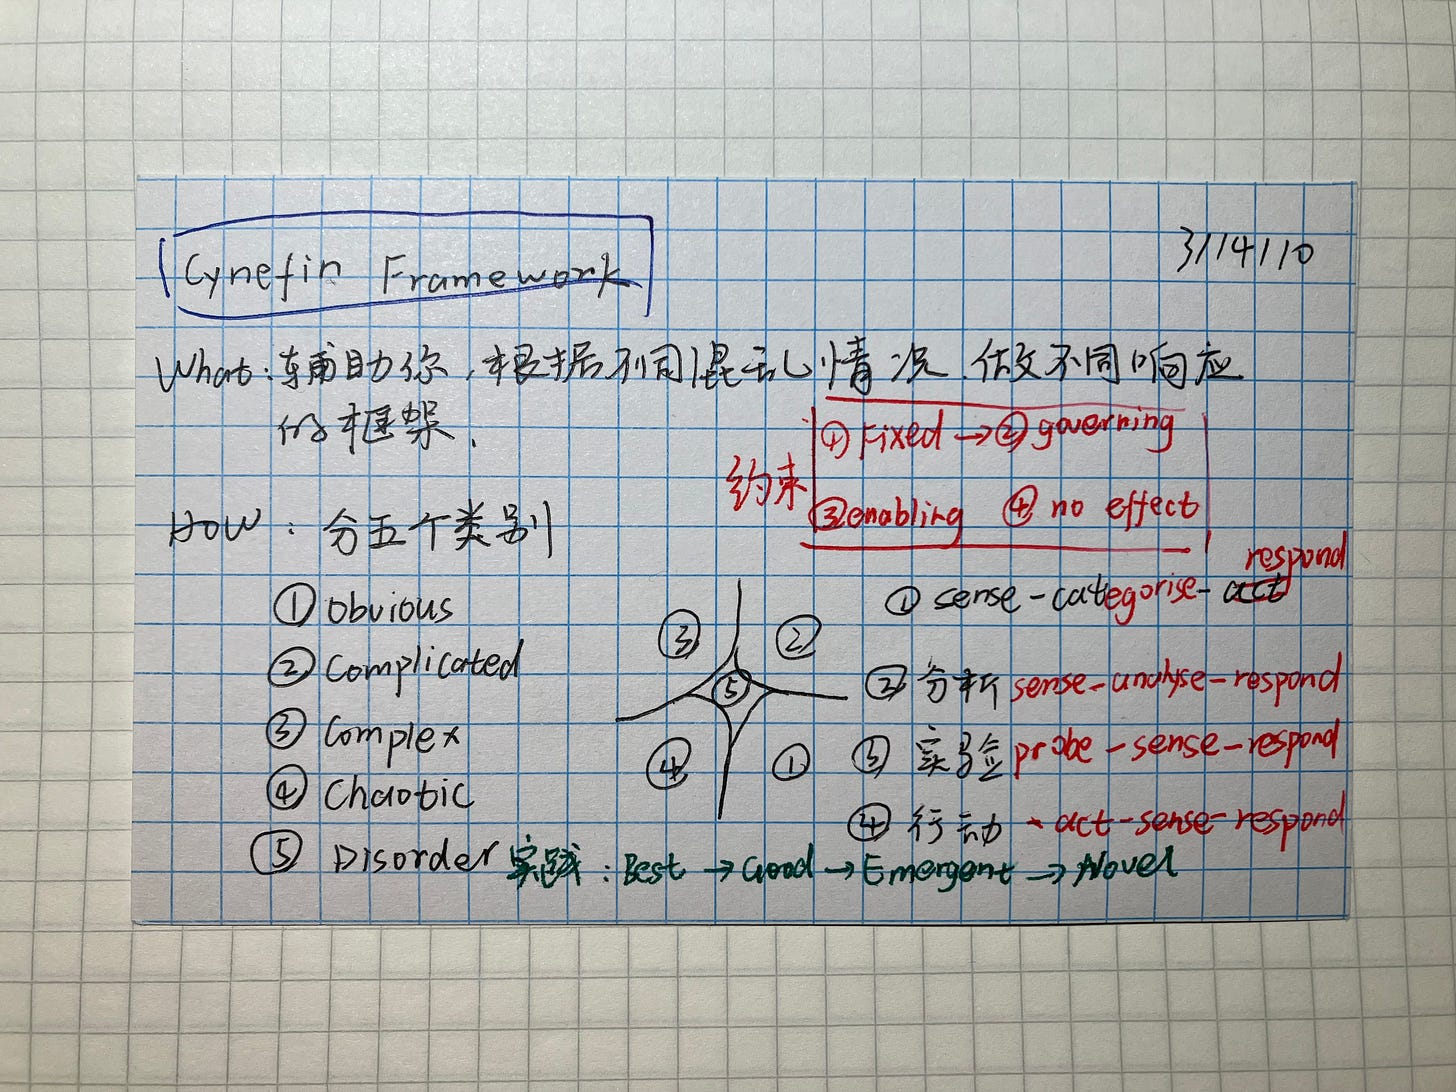 Cynefin Framework
3/14/10
What: 辅助你,根据不同混乱情况,做不同响应
的框架.
约束
① Fixed → ② governing
③ enabling ④ no effect
HOW : 分五个类别
① obvious
② Complicated
③ Complex
④ Chaotic
⑤ Disorder
③ ②
⑤
④ ①
respond
① sense-categorise-act
② 分析 sense-analyse-respond
③ 实验 probe-sense-respond
④ 行动 - act-sense-respond
实践: Best → Good → Emergent → Novel